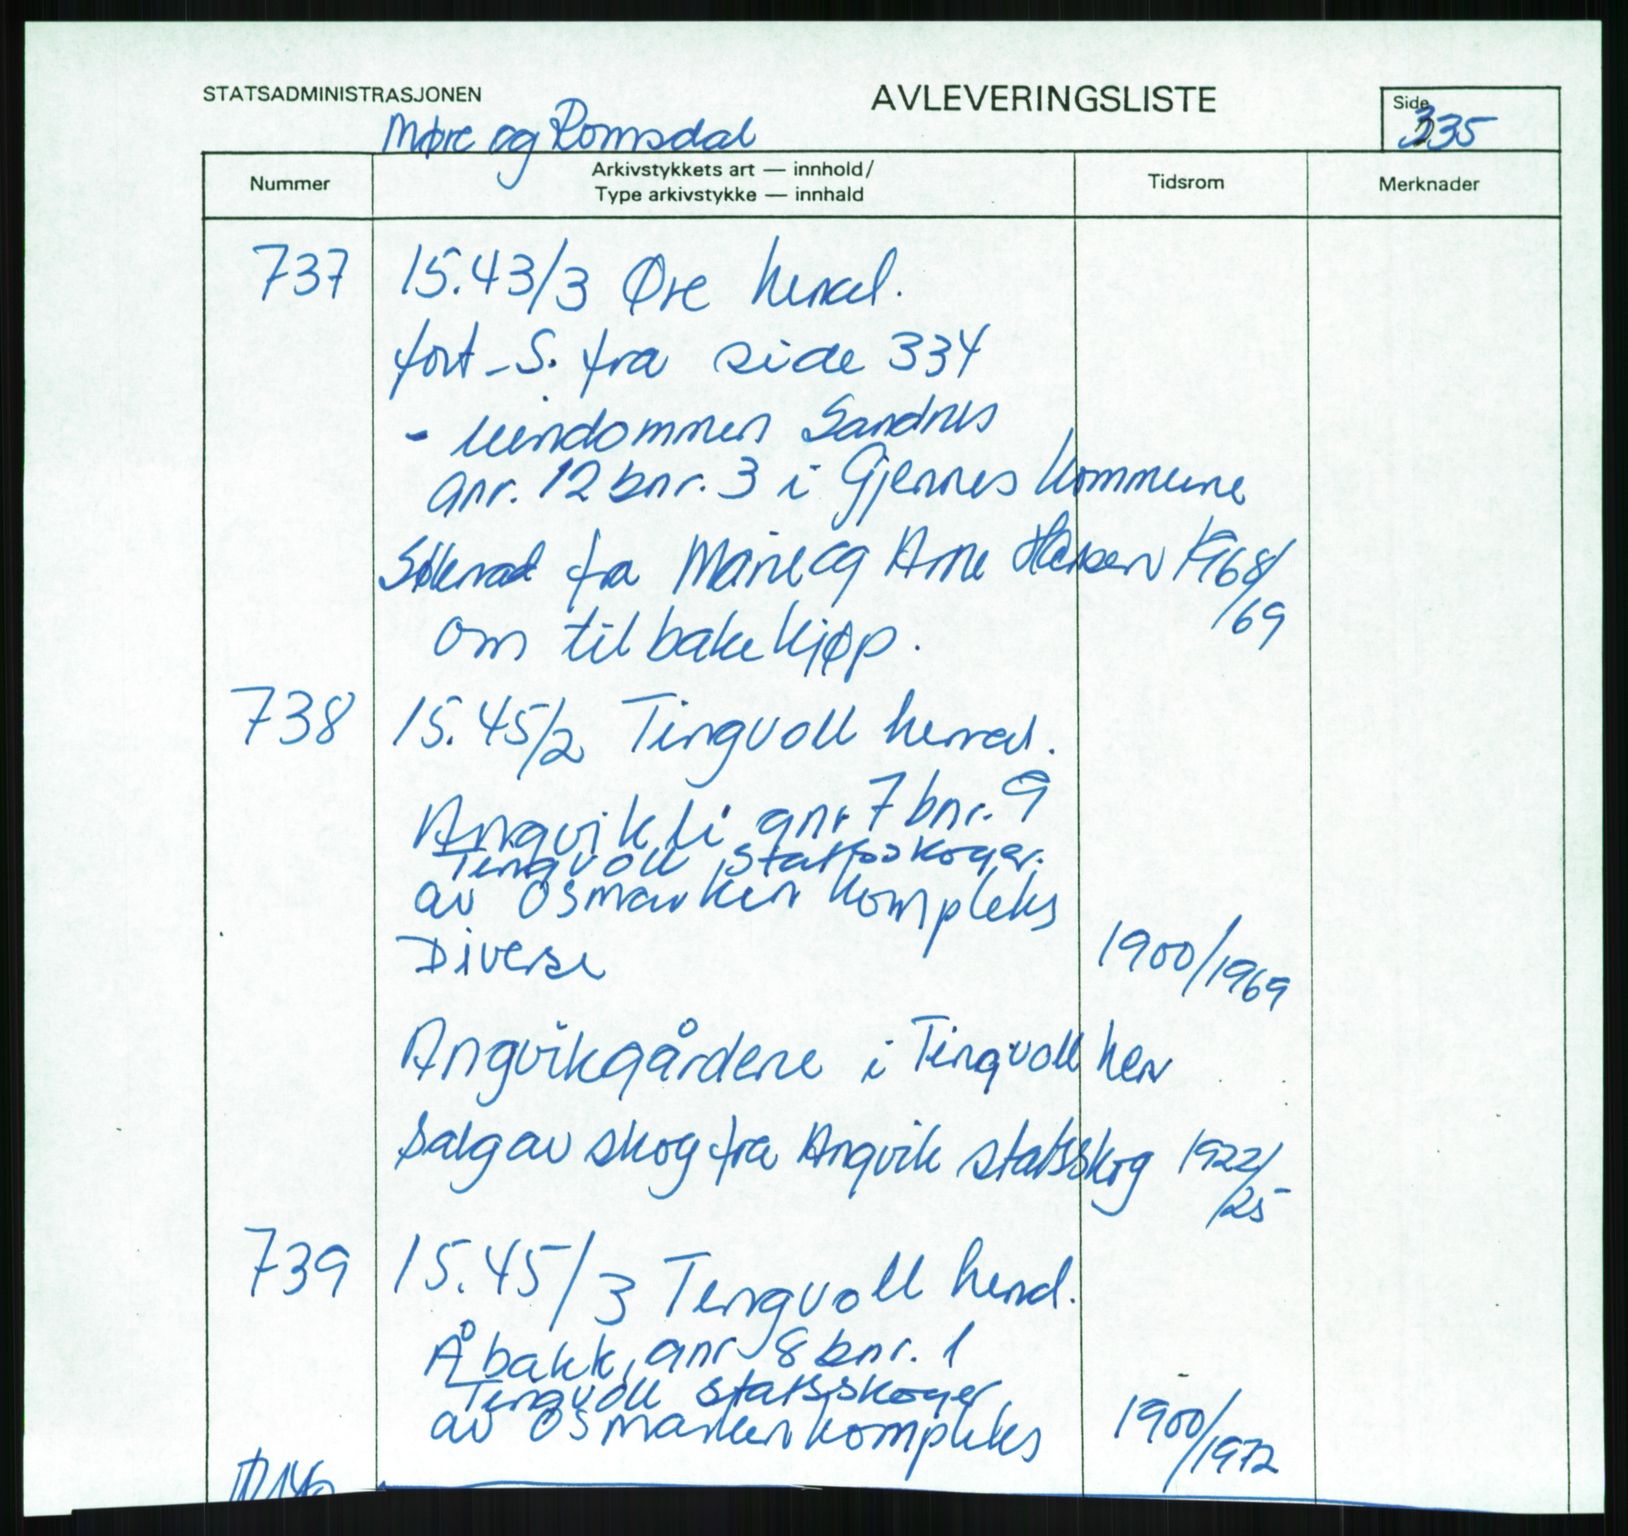 STATSADMINISTRASJONEN
AVLEVERINGSLISTE
Side
335
Møre og Romsdal
Nummer
Arkivstykkets art — innhold/
Type arkivstykke — innhald
Tidsrom
Merknader
737 15.43/3 Øre herred.
fort-S. fra side 334
- eiendommen Sandnes
gnr. 12 bnr. 3 i Gjemnes kommune
Søknad fra Marie og Arne Hansen 1968/
/69
om tilbakekjøp.
738 15.45/2 Tingvoll herred.
Angvikli gnr 7 bnr. 9
Tingvoll statsskoger.
av Osmarken kompleks
Diverse 1900/1969
Angvikgårdene i Tingvoll herr
Salg av skog fra Angvik statsskog 1922/
/25
739 15.45/3 Tingvoll herred.
Åbakk, gnr 8 bnr. 1
Tingvoll statsskoger
av Osmarken kompleks 1900/1972